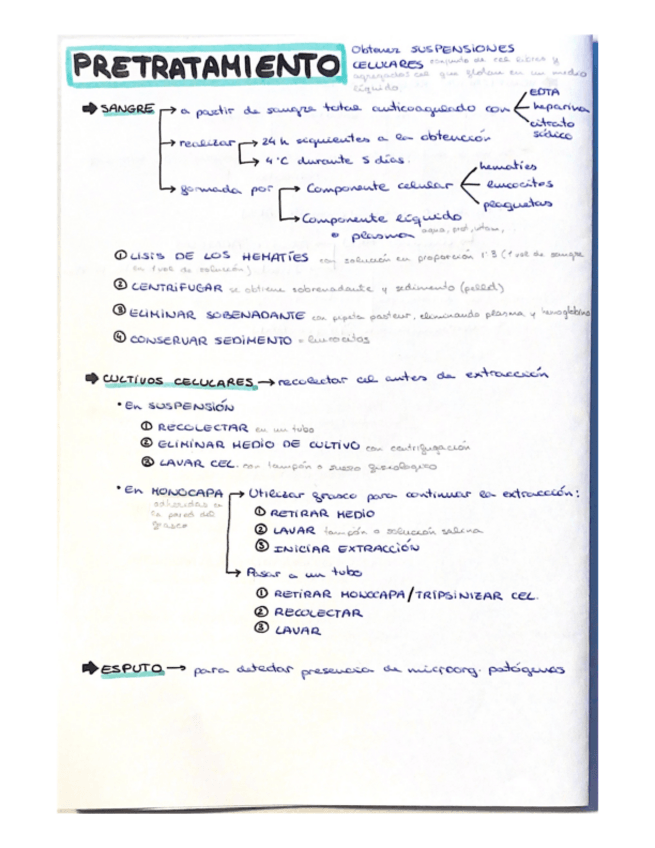 PRETRATAMIENTO
Obtener SUSPENSIONES
CELULARES conjunto de cel libres y
agregados cel que flotan en un medio
líquido.
➡ SANGRE → a partir de sangre total anticoagulado con EDTA
heparina
citrato
sódico
→ realizar → 24 h siguientes a la obtención
→ 4°C durante 5 días.
→ formada por → Componente celular hematíes
leucocitos
plaquetas
→ Componente líquido
o plasma agua, prot, vitam,
① LISIS DE LOS HEMATÍES con solución en proporción 1:3 (1 vol de sangre
en 3 vol de solución)
② CENTRIFUGAR se obtiene sobrenadante y sedimento (pellet)
③ ELIMINAR SOBENADANTE con pipeta pasteur, eliminando plasma y hemoglobina
④ CONSERVAR SEDIMENTO = leucocitos
➡ CULTIVOS CELULARES → recolectar cel antes de extracción
• En SUSPENSIÓN
① RECOLECTAR en un tubo
② ELIMINAR MEDIO DE CULTIVO con centrifugación
③ LAVAR CEL. con tampón o suero fisiológico
• En MONOCAPA → Utilizar frasco para continuar la extracción:
adheridas en
la pared del
frasco
① RETIRAR MEDIO
② LAVAR tampón o solución salina
③ INICIAR EXTRACCIÓN
→ Pasar a un tubo
① RETIRAR MONOCAPA/TRIPSINIZAR CEL.
② RECOLECTAR
③ LAVAR
➡ ESPUTO → para detectar presencia de microorg. patógenos